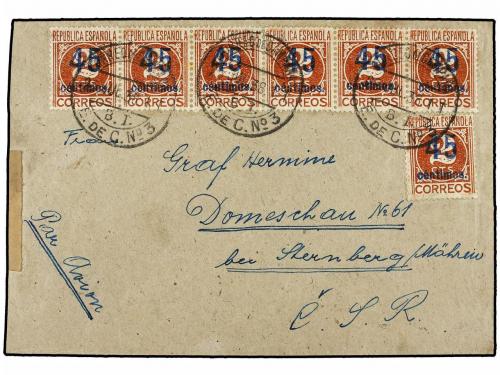 REPUBLICA ESPAÑOLA REPUBLICA ESPAÑOLA REPUBLICA ESPAÑOLA REPUBLICA ESPAÑOLA REPUBLICA ESPAÑOLA REPUBLICA ESPAÑOLA
45 45 45 45 45 45
2 2 2 2 2 2
céntimos. céntimos. céntimos. céntimos. céntimos. céntimos.
CORREOS CORREOS CORREOS CORREOS CORREOS
B. I.
DE C. Nº 3
B. I.
DE C. Nº 3
B. I.
DE C. Nº
REPUBLICA ESPAÑOLA
45
2
céntimos.
CORREOS
Graf Hermine
Domeschau №61
bei Sternberg/Mähren
Č S R
Par Avion